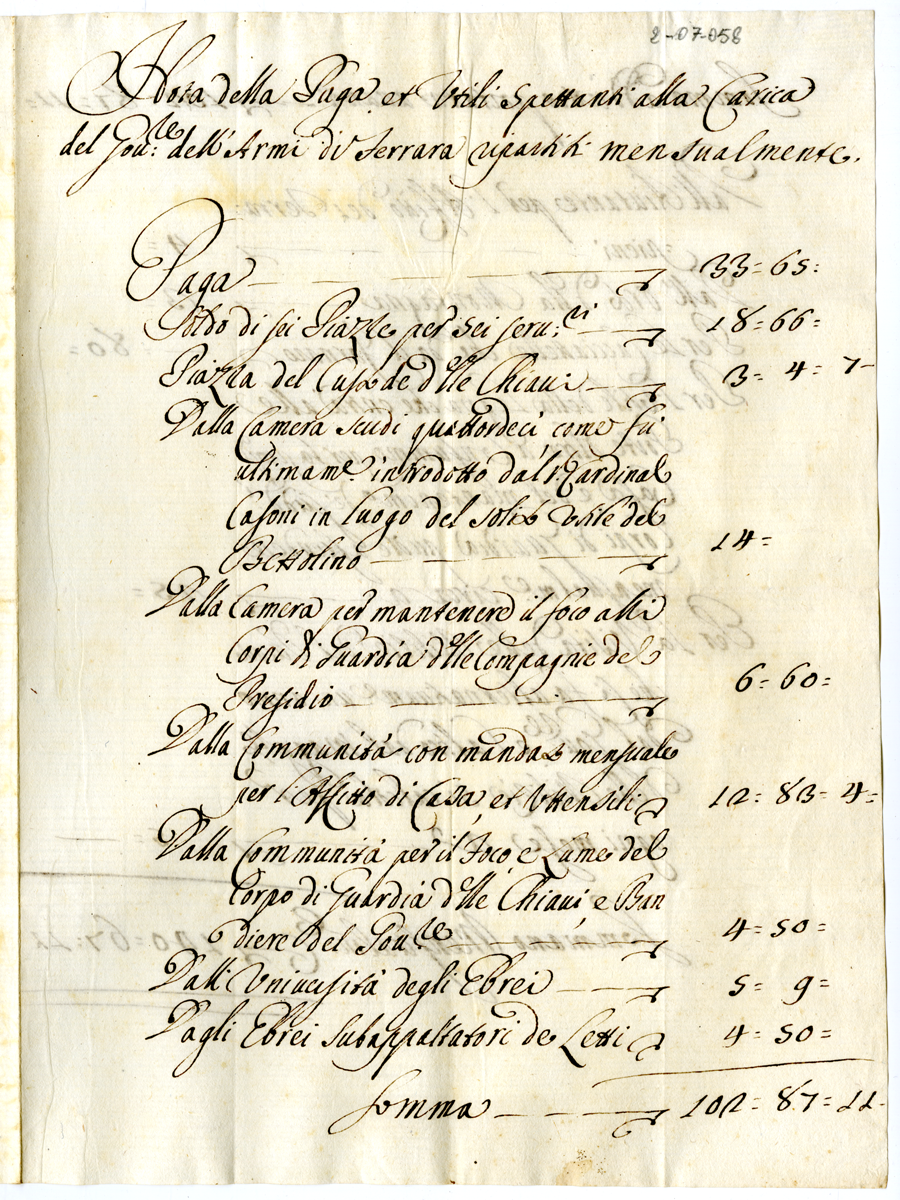 2-07-058
Nota della Paga et Utili Spettanti alla Carica
del Gou:re dell'Armi di Ferrara ripartiti mensualmente.
Paga 33= 65:
Soldo di sei Piazze per sei seru:ri 18= 66=
Piazza del Custode d'lle Chiaui 3= 4= 7
Dalla Camera scudi quattordeci come fù
ultimam:e introdotto dal r: Cardinal
Casoni in luogo del solito Utile del
Bettolino 14=
Dalla Camera per mantenere il foco alli
Corpi di Guardia d'lle Compagnie del
Presidio 6= 60=
Dalla Communità con mandato mensuale
per l'Affitto di Casa, et Uttensili 12= 83= 4=
Dalla Communità per il Foco e Lume del
Corpo di Guardia d'lle Chiaui e Ban
diere del Gou:re 4= 50=
Dall' Uniuersità degli Ebrei 5= 9=
Dagli Ebrei Subappaltatori de Letti 4= 50=
Somma 102= 87= 11